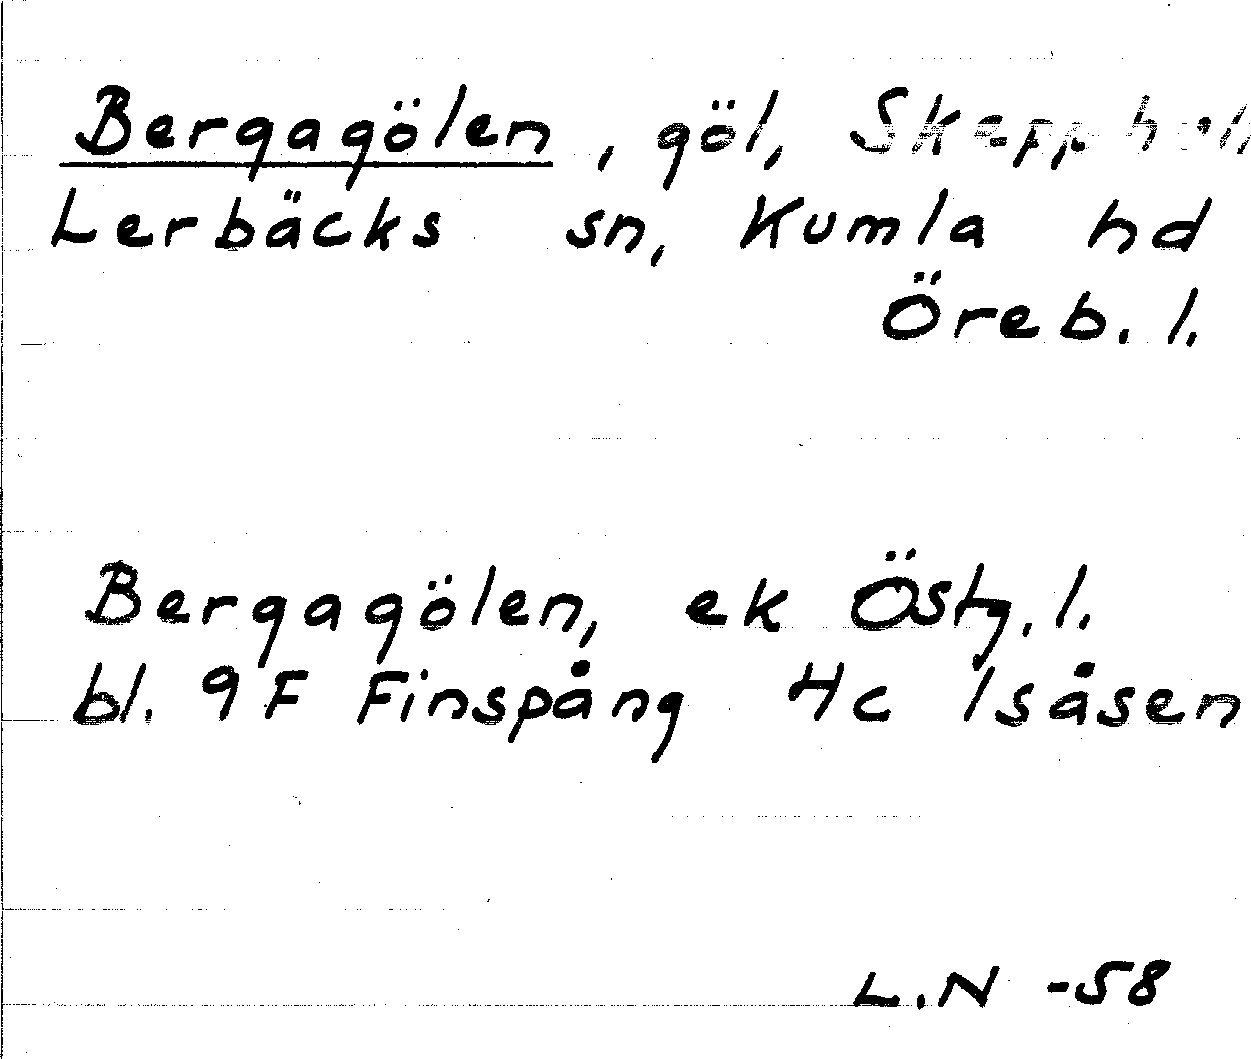 Bergagölen, göl,
Lerbäcks sn, Kumla hd
Öreb. l.
Bergagölen, ek Östg. l.
bl. 9F Finspång 4c Isåsen
L.N -58